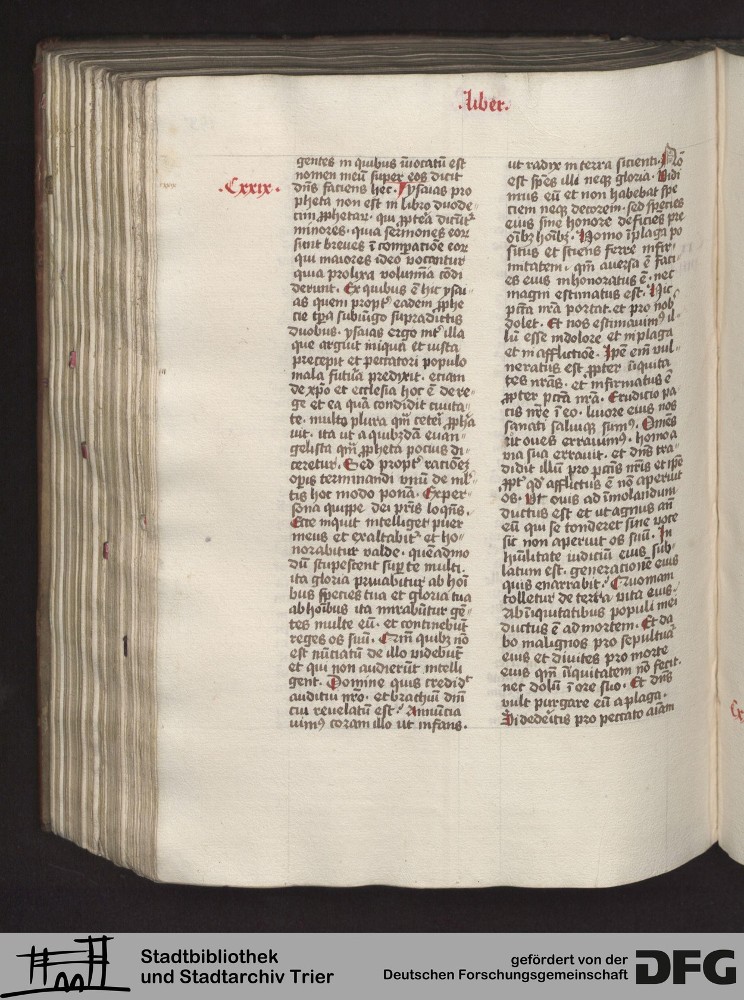 .liber.
.Cxxix.
gentes in quibus īuocatū est
nomen meū super eos dicit
dn̄s faciens hec. ysaias pro
pheta non est in libro duode
cim
minores. quia sermones eor
sunt breues ī compatiōe eor
qui maiores ideo vocantur
quia prolixa volumīa cōdi
derunt. Ex quibus ē hic ysai
as quem propt eadem ꝓphe
cie subiūgo supradictis
duobus. ysaias ergo int illa
que arguit iniqua et iusta
precepit et peccatori populo
mala futura predixit. eciam
de xp̄o et ecclesia hoc ē de re
ge et ea quā condidit ciuita
te. multo plura qm̄ ceteri ꝓpha
uit. ita ut a quibzdā euan
gelista qm̄ ꝓpheta pocius di
ceretur. Sed propt racionē
opis terminandi vnū de ml
tis hoc modo ponā. Ex per
sona quippe dei pr̄is loqn̄s.
Ecce inquit intelliget puer
meus et exaltabit et ho
norabitur valde. quēadmo
dū stupescent sup te multi.
ita gloria priuabitur ab hoī
bus species tua et gloria tua
ab hoībus ita mirabūtur gē
tes multe eū. et continebūt
reges os suū. Qm̄ quibz nō
est nūtiatū de illo videbūt
et qui non audierūt intelli
gent. Domine quis credidt
auditui nr̄o. et brachiū dn̄i
cui reuelatū est. Annūcia
uimꝰ coram illo ut infans.
ut radix in terra sicienti. Nō
est spēs illi neqꝫ gloria. Vidi
mus eū et non habebat spe
ciem neqꝫ decorem. sed species
eius sine honore deficiēs pre
oībꝫ hoībꝫ. Homo ī plaga po
situs et sciens ferre infir
mitatem. qm̄ auersa ē faci
es eius inhonoratus ē. nec
magni estimatus est. Hic
pctā nr̄a portat. et pro nob
dolet. Et nos estimauimꝰ il
lū esse in dolore et in plaga
et in afflictiōe. Ipē em̄ vul
neratus est ꝓpter īiquita
tes nr̄as. et infirmatus ē
ꝓpter pctā nr̄a. Erudicio pa
cis nr̄e ī eo. liuore eius nos
sanati sumꝰ. Om̄es
sic oues errauimꝰ. homo a
via sua errauit. et dn̄s tra
didit illū pro pctīs nr̄is et ipē
ꝓpt qd afflictus ē nō aperuit
os. Vt ouis ad īmolandum
ductus est et ut agnus an̄
eū qui se tonderet sine voce
sic non aperuit os suū. In
hūilitate iudiciū eius sub
latum est. generacionē eius
quis enarrabit. Quoniam
tolletur de terra vita eius.
Ab īiquitatibus populi mei
ductus ē ad mortem. Et da
bo malignos pro sepultura
eius et diuites pro morte
eius qm̄ īiquitatem nō fecit.
nec dolū ī ore suo. Et dn̄s
vult purgare eū a plaga.
Si dederitis pro peccato aīam
Stadtbibliothek
und Stadtarchiv Trier
gefördert von der
Deutschen Forschungsgemeinschaft
DFG